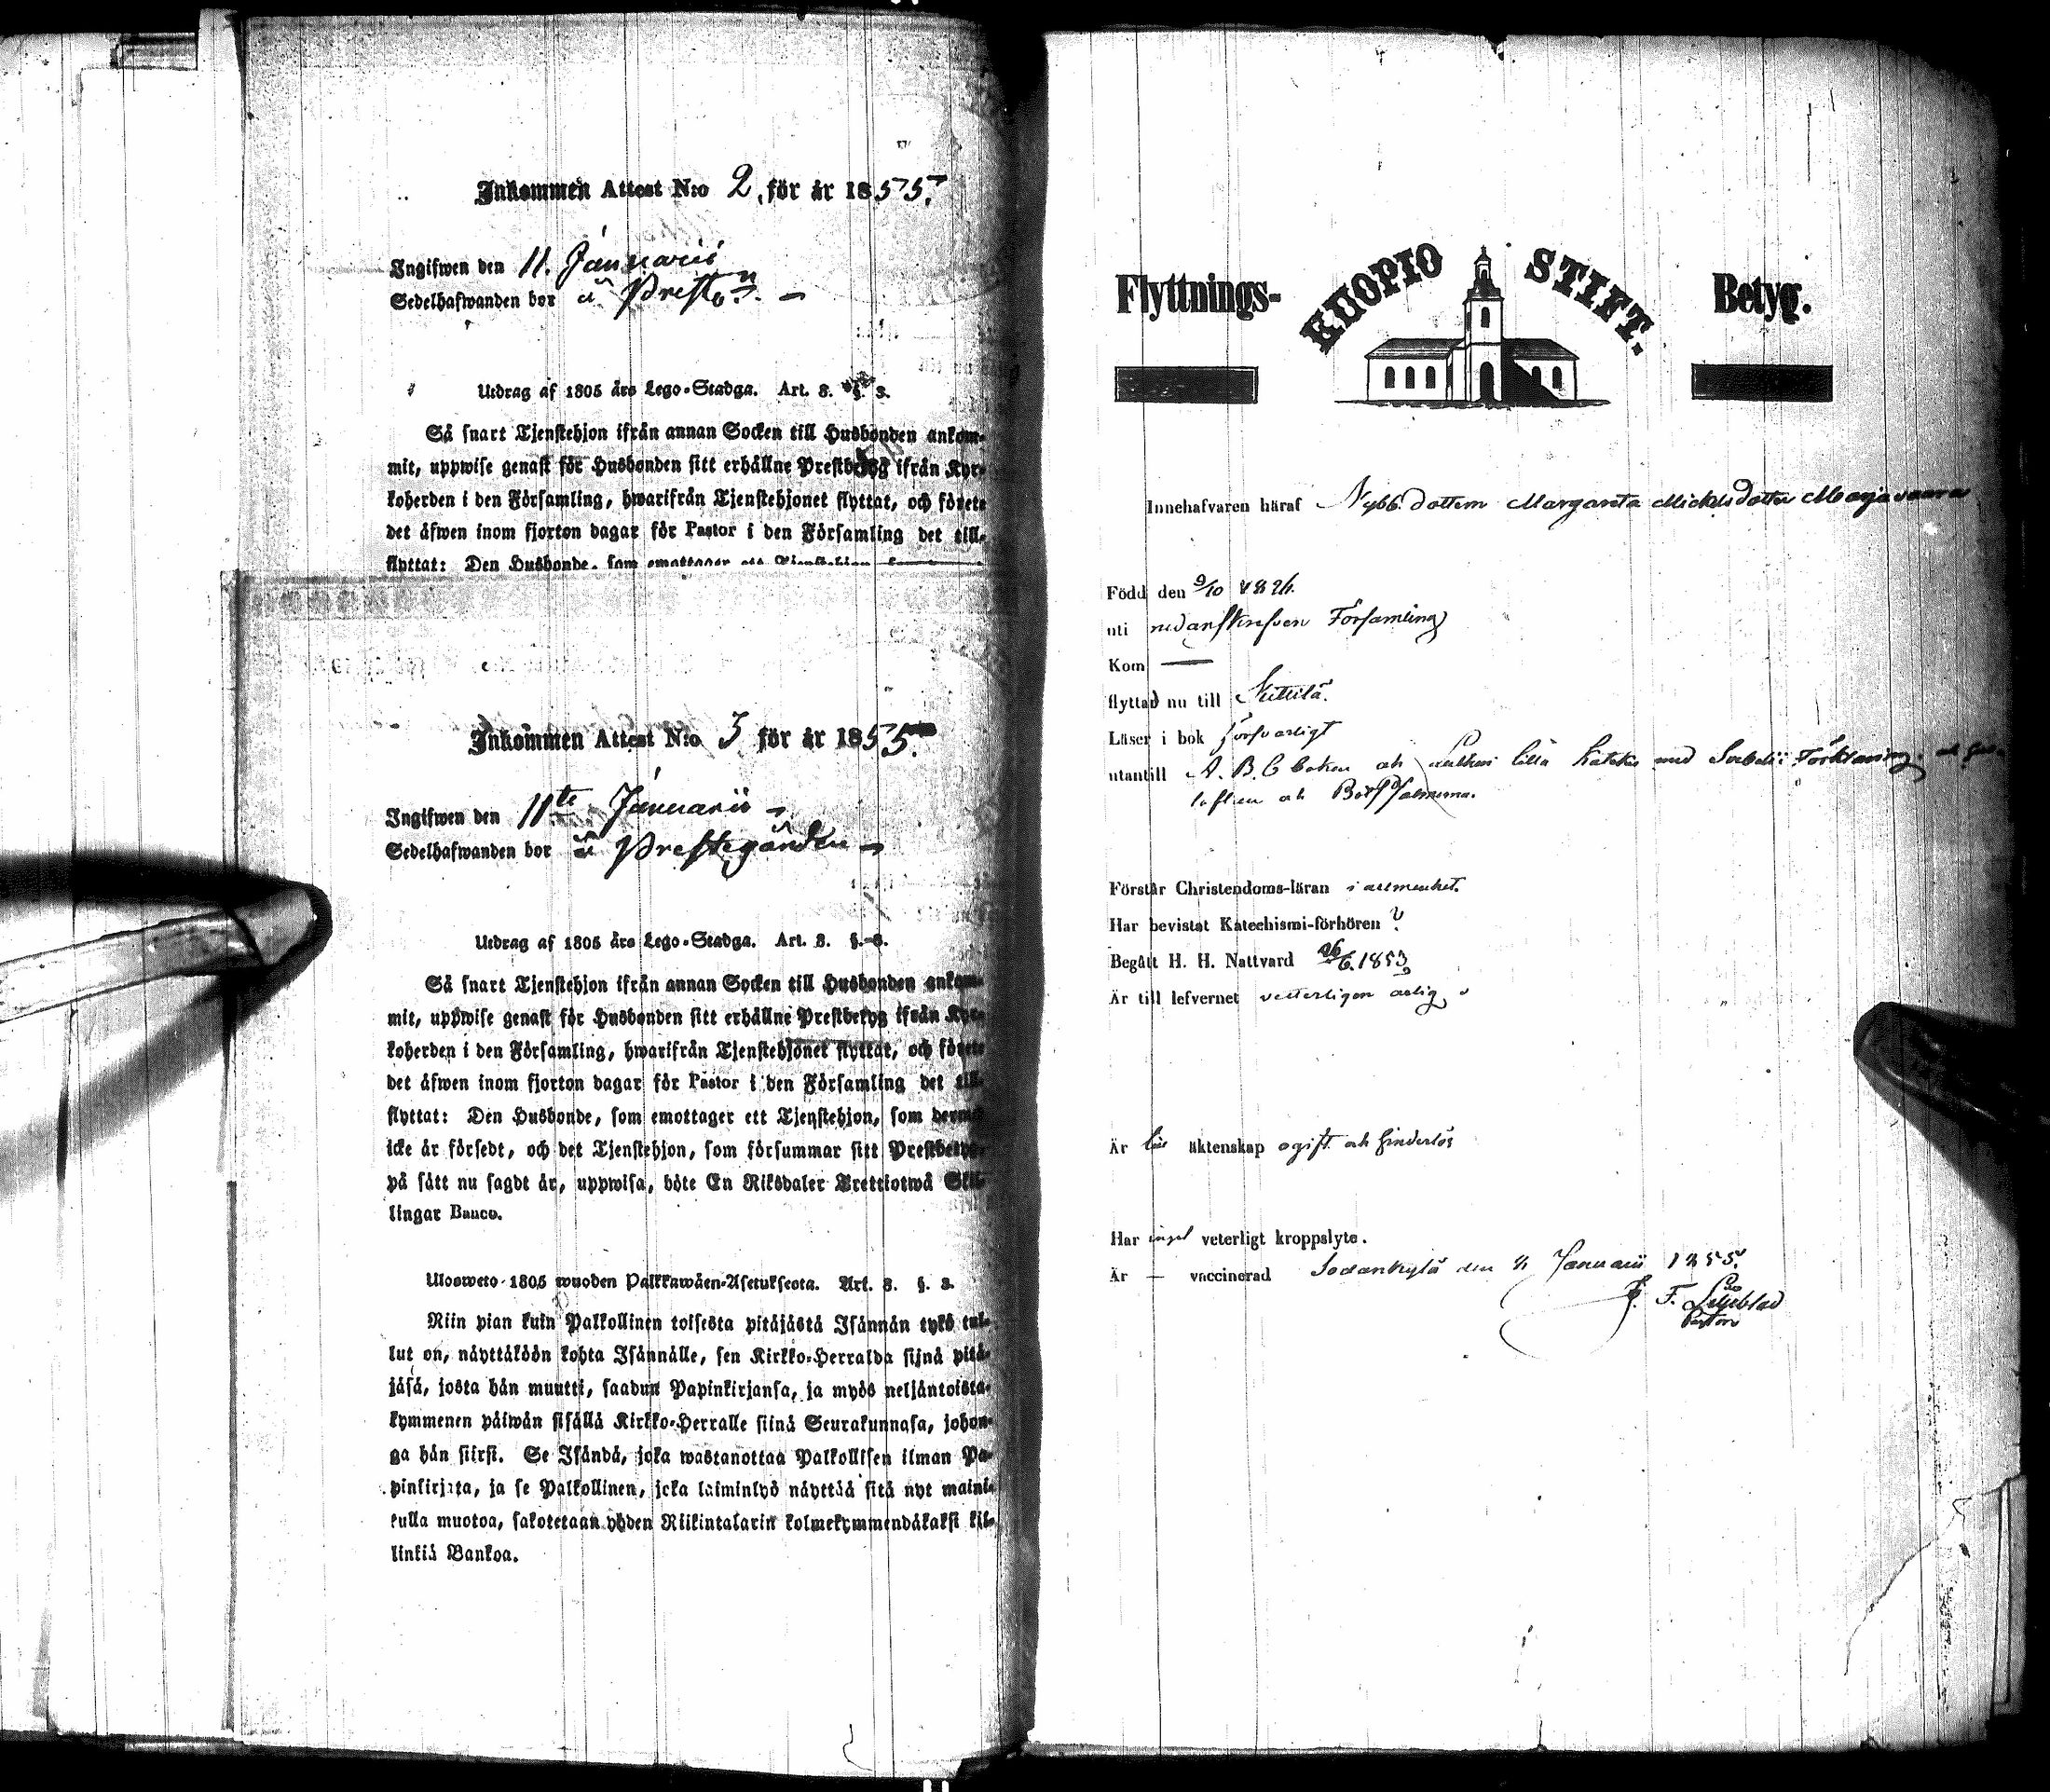 Inkommen Attest N:o 2. för år 1855.
Ingifwen den 11. Januarii
Sedelhafwanden bor å Prest:n. –
Utdrag af 1805 års Lego-Stadga. Art. 8. §. 3.
Så snart Tjenstehjon ifrån annan Socken till Husbonden ankom-
mit, uppwise genast för Husbonden sitt erhållne Prestbetyg ifrån Kyr-
koherden i den Församling, hwarifrån Tjenstehjonet flyttat, och förete
det äfwen inom fjorton dagar för Pastor i den Församling det till-
flyttat: Den Husbonde, som emottager ett Tjenstehjon,
Inkommen Attest N:o 3 för år 1855.
Ingifwen den 11te Januarii –
Sedelhafwanden bor å Prestegården –
Utdrag af 1805 års Lego-Stadga. Art. 8. §. 3.
Så snart Tjenstehjon ifrån annan Socken till Husbonden ankom-
mit, uppwise genast för Husbonden sitt erhållne Prestbetyg ifrån Kyr-
koherden i den Församling, hwarifrån Tjenstehjonet flyttat, och förete
det äfwen inom fjorton dagar för Pastor i den Församling det till-
flyttat: Den Husbonde, som emottager ett Tjenstehjon, som dermed
icke är försedt, och det Tjenstehjon, som försummar sitt Prestbetyg,
på sätt nu sagdt är, uppwisa, böte En Riksdaler Trettiotwå Skil-
lingar Banco.
Ulosweto 1805 wuoden Palkkawäen-Asetuksesta. Art. 8. §. 3.
Niin pian kuin Palkollinen toisesta pitäjästä Isännän tykö tul-
lut on, näyttäköön kohta Isännälle, sen Kirkko-Herralda siinä pitä-
jäsä, josta hän muutti, saadun Papinkirjansa, ja myös neljäntoista-
kymmenen päiwän sisällä Kirkko-Herralle siinä Seurakunnasa, johon-
ga hän siirsi. Se Isändä, joka wastanottaa Palkollisen ilman Pa-
pinkirjata, ja se Palkollinen, joka laiminlyö näyttää sitä nyt maini-
tulla muotoa, sakotetaan yhden Riikintalarin kolmekymmendäkaksi kil-
linkiä Bankoa.
Flyttnings- KUOPIO STIFT. Betyg.
Innehafvaren häraf Nybb. dottern Margareta Mickelsdotter Marjavaara
Född den 9/10 1826.
uti nedanskrefven Församling
Kom —
flyttad nu till Kittilä.
Läser i bok försvarligt
utantill A. B. C boken och Lutheri lilla Kateches med Svebelii Förklaring, och
och Bot Psalmerna.
Förstår Christendoms-läran i allmenhet.
Har bevistat Katechismi-förhören
Begått H. H. Nattvard 26/6. 1853
Är till lefvernet vetterligen ärlig
Är till äktenskap ogift och hinderlös
Har inget veterligt kroppslyte.
Är — vaccinerad Sodankylä den Januarii 1855.
F. Liljeblad
Pastor